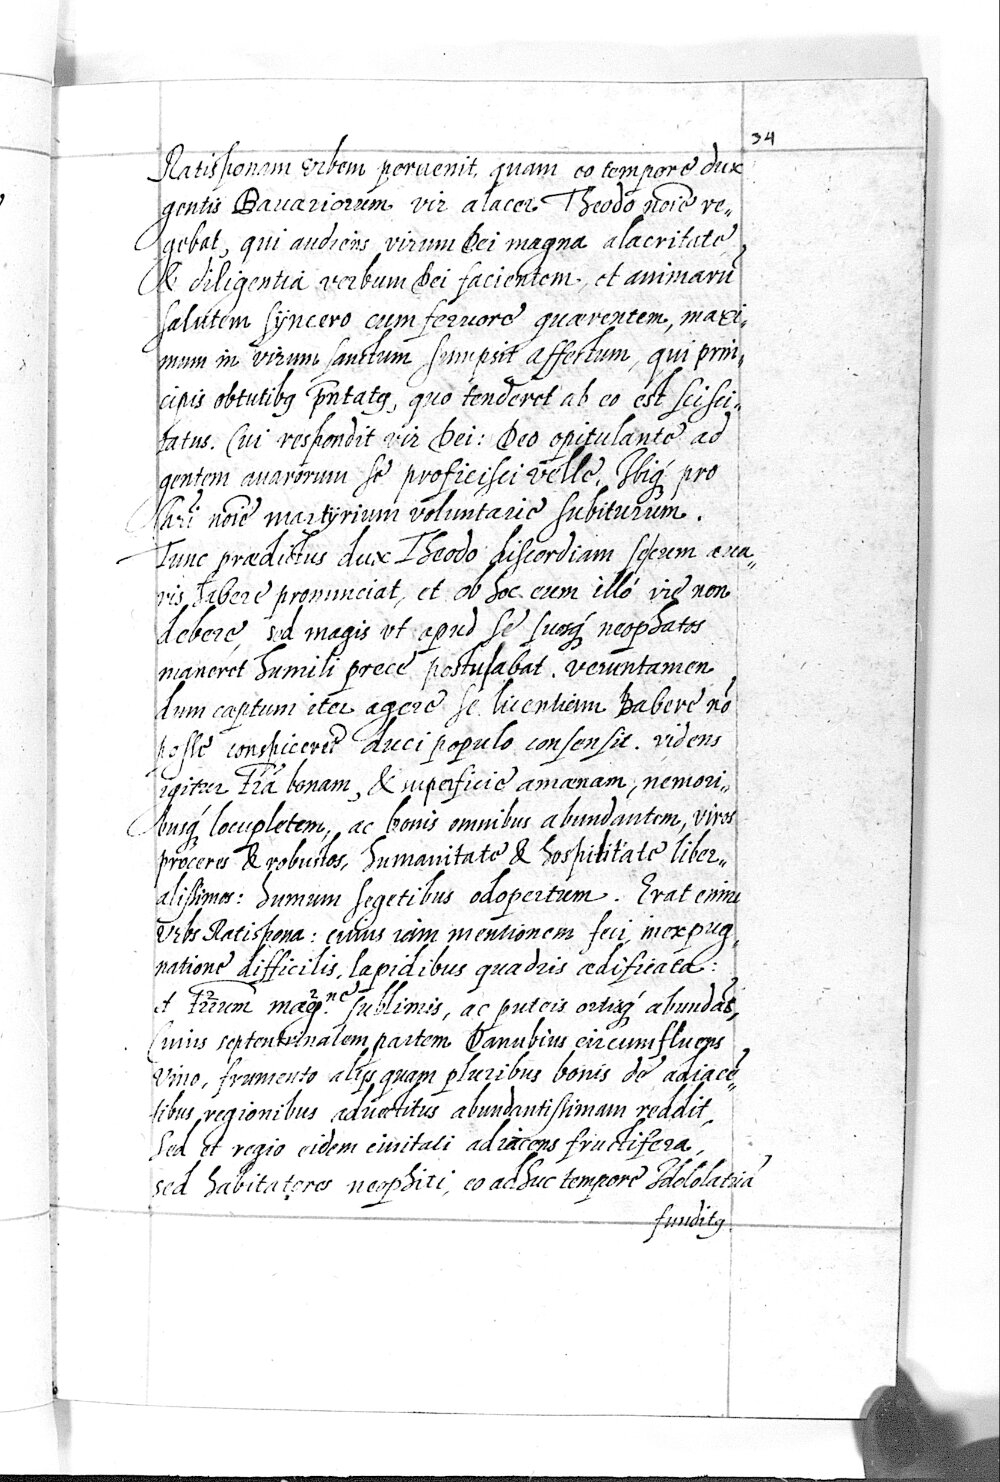 34
Ratisponam vrbem peruenit, quam eo tempore dux
gentis Bauariorum vir alacer Theodo noīe re-
gebat, qui audiens virum Dei magna alacritate
& diligentia verbum Dei facientem, et animarū
salutem syncero cum feruore quærentem, maxi-
mum in virum sanctum sumpsit affectum, qui prin-
cipis obtutibꝯ pn̄tatꝯ, quo tenderet ab eo est sci sci-
tatus. Cui respondit vir Dei: Deo opitulante ad
gentem auarorum se proficisci velle, Ibiq́ pro
Chr̄i noīe martyrium voluntarie subiturum.
Tunc prædictus dux Theodo discordiam secum aua-
ris habere pronunciat, et ob hoc eum illó vie non
debere, sed magis vt apud se suosq́ neophatos
maneret humili prece postulabat. veruntamen
dum captum iter agere se licentiam habere nō
posse conspiceret duci populo consensit. videns
igitur Tr̄ā bonam, & superficie amænam, nemori-
busq́ locupletem, ac bonis omnibus abundantem, viros
proceres & robustos, humanitate & hospititate liber-
alissimos: humum segetibus odopertum. Erat enim
Vrbs Ratispona: cuius iam mentionem feci, inexpug-
natione difficilis, lapidibus quadris ædificata:
et Tr̄rium mag.ne sublimis, ac puteis ortisq́ abundās,
Cuius septentrinalem partem Danubius circumfluens
vino, frumento alijs quam pluribus bonis de adiacē-
tibus regionibus aduectitus abundantissimam reddit,
Sed et regio eidem ciuitati adiacens fructifera,
sed habitatores neophiti, eo adhuc tempore Idololatriā
funditꝯ.